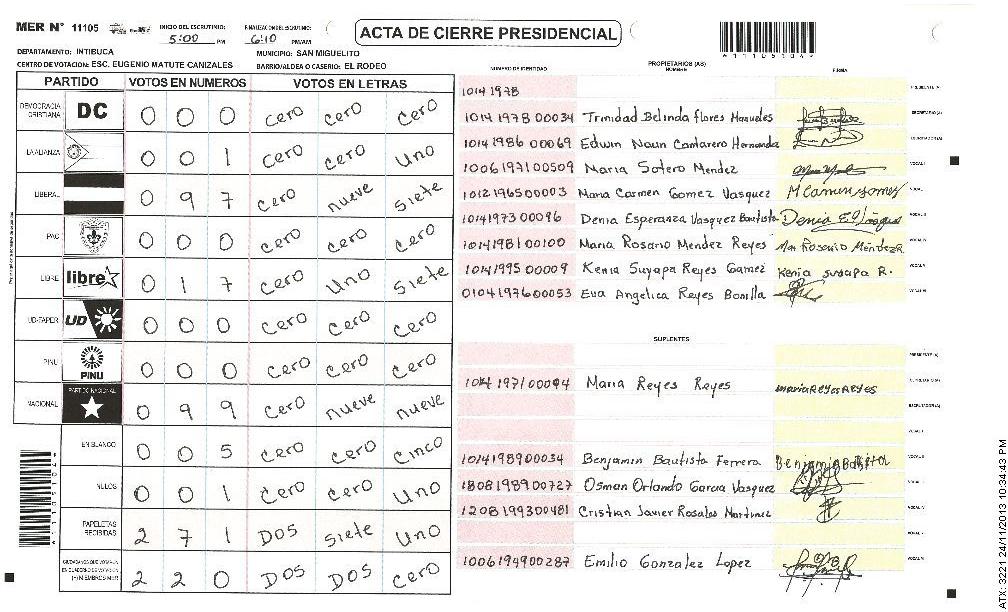 MER N° 11105 INICIO DEL ESCRUTINIO: 5:00 PM FINALIZACION DEL ESCRUTINIO: 6:10 PM/AM
ACTA DE CIERRE PRESIDENCIAL
11151044
DEPARTAMENTO: INTIBUCA MUNICIPIO: SAN MIGUELITO
CENTRO DE VOTACION: ESC. EUGENIO MATUTE CANIZALES BARRIO/ALDEA O CASERIO: EL RODEO
PARTIDO VOTOS EN NUMEROS VOTOS EN LETRAS
DEMOCRACIA CRISTIANA DC 0 0 0 cero cero cero
LA ALIANZA 0 0 1 cero cero Uno
LIBERAL 0 9 7 cero nueve siete
PAC 0 0 0 cero cero cero
LIBRE libre 0 1 7 cero Uno siete
UD-FAPER UD 0 0 0 cero cero cero
PINU PINU 0 0 0 cero cero cero
NACIONAL PARTIDO NACIONAL 0 9 9 cero nueve nueve
EN BLANCO 0 0 5 cero cero cinco
NULOS 0 0 1 cero cero Uno
PAPELETAS RECIBIDAS 2 7 1 DOS siete Uno
CIUDADANOS QUE VOTARON EN CUADERNO DE VOTACION (+) MIEMBROS MER 2 2 0 DOS DOS cero
NUMERO DE IDENTIDAD PROPIETARIOS (AS) NOMBRE FIRMA
1014 1978 PRESIDENTE (A)
1014 1978 00034 Trinidad Belinda flores SECRETARIO (A)
1014 1986 00069 Edwin Noun Cantarero Hernandz ESCRUTADOR (A)
1006197100509 Maria Sotero Mendez VOCAL I
1012196500003 Maria Carmen Gomez Vasquez M Carmen gomez
1014197300096 Denia Esperanza Vasquez Bautista Denia
1014198100100 Maria Rosario Mendez Reyes Ma Rosario Méndez R
1014199500009 Kenia Suyapa Reyes Gamez Kenia suyapa R.
0104197600053 Eva Angelica Reyes Bonilla
SUPLENTES
PRESIDENTE (A)
1014 197100094 Maria Reyes Reyes maria REYES REYES SECRETARIO (A)
ESCRUTADOR (A)
1014198900034 Benjamin Bautista Ferrera
1808198900727 Osman Orlando Garcia Vasquez
1208199300481 Cristian Javier Rosales Martinez
1006194900287 Emilio Gonzalez Lopez
ATX: 3221 24/11/2013 10:34:43 PM